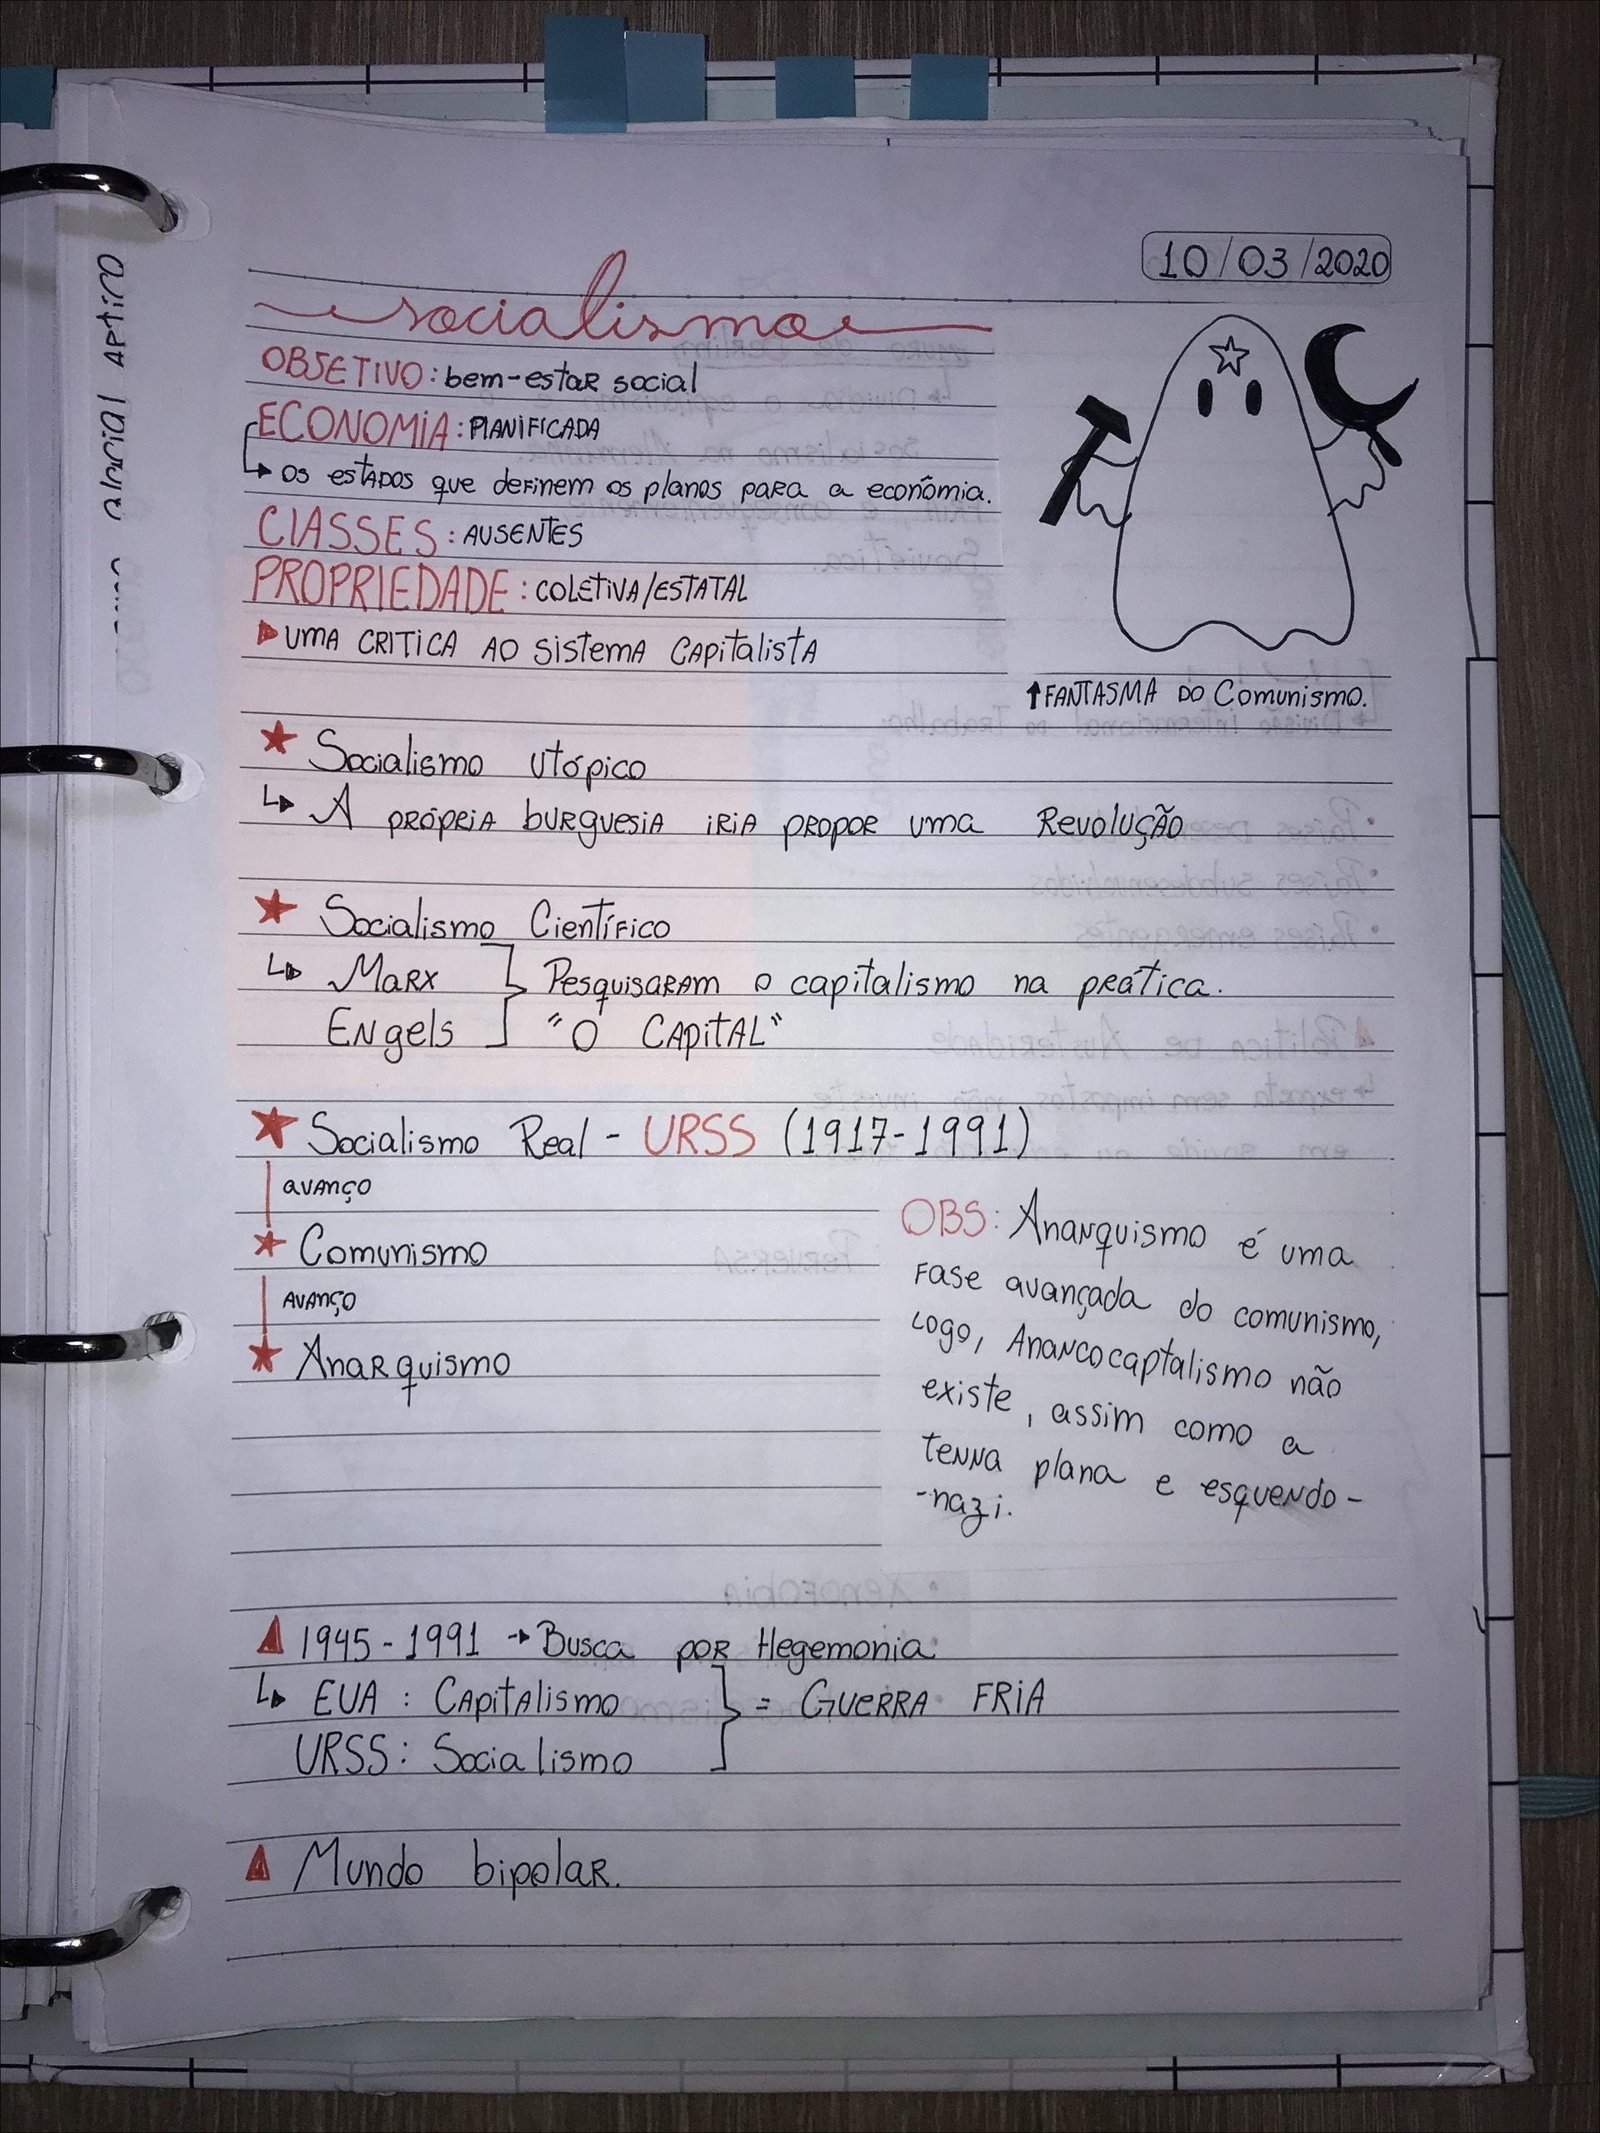 10/03/2020
socialismo
OBJETIVO: bem-estar social
ECONOMIA: PLANIFICADA
↳ os estados que definem os planos para a econômia.
CLASSES: AUSENTES
PROPRIEDADE: COLETIVA/ESTATAL
▶ UMA CRITICA AO SISTEMA CAPITALISTA
↑ FANTASMA DO Comunismo.
★ Socialismo utópico
↳ A própria burguesia iria propor uma Revolução
★ Socialismo Científico
↳ Marx ] Pesquisaram o capitalismo na prática.
Engels ] "O CAPITAL"
★ Socialismo Real - URSS (1917-1991)
avanço
★ Comunismo
avanço
★ Anarquismo
OBS: Anarquismo é uma
fase avançada do comunismo,
logo, Anarcocaptalismo não
existe, assim como a
terra plana e esquerdo-
-nazi.
▲ 1945-1991 → Busca por Hegemonia
↳ EUA: Capitalismo } = GUERRA FRIA
URSS: Socialismo
▲ Mundo bipolar.